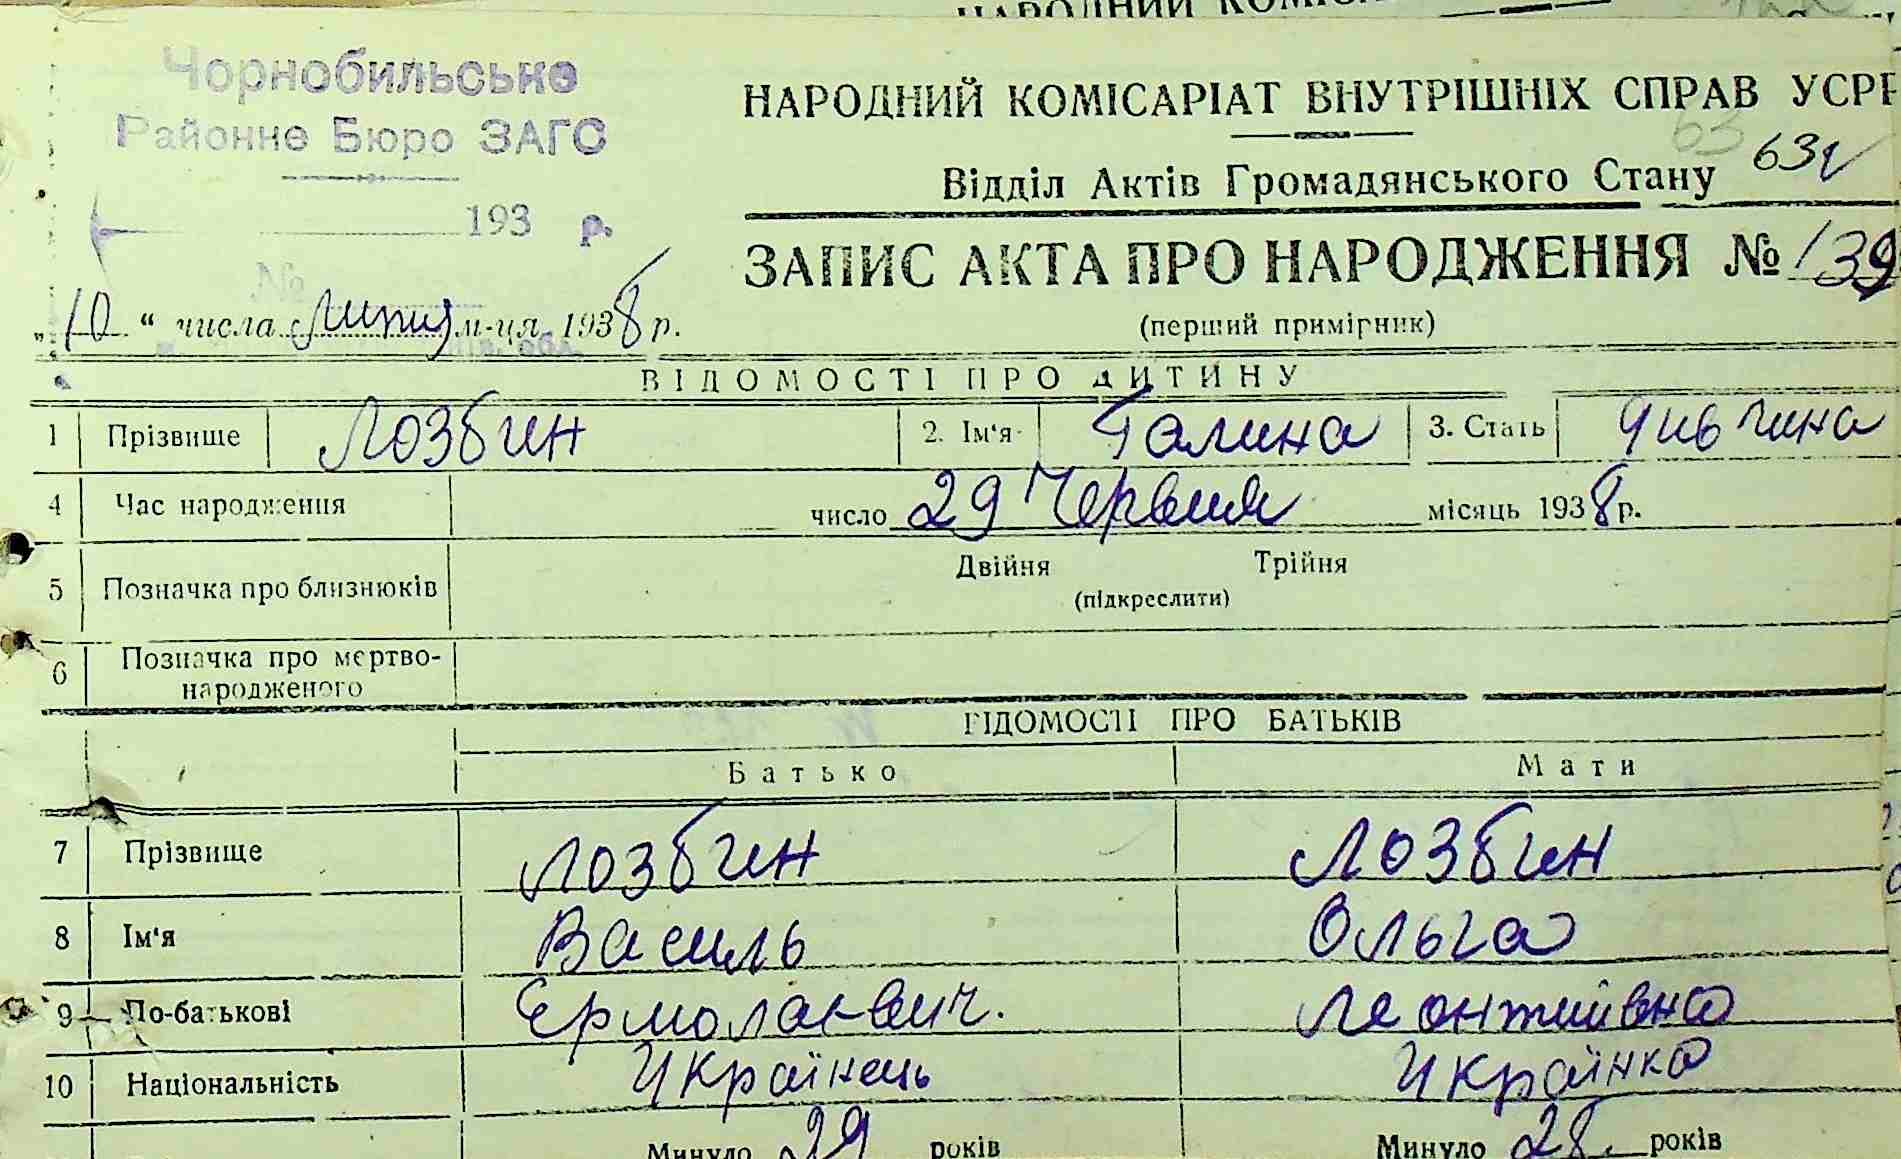 Чорнобильське
Районне Бюро ЗАГС
193 р.
№
НАРОДНИЙ КОМІСАРІАТ ВНУТРІШНІХ СПРАВ УСРР
63
Відділ Актів Громадянського Стану
ЗАПИС АКТА ПРО НАРОДЖЕННЯ № 139
(перший примірник)
„10“ числа липня м-ця 1938 р.
ВІДОМОСТІ ПРО ДИТИНУ
1 Прізвище Лозбин 2. Ім'я Галина 3. Стать дивчина
4 Час народження число 29 Червня місяць 1938 р.
5 Позначка про близнюків Двійня Трійня
(підкреслити)
6 Позначка про мертво-
народженого
ВІДОМОСТІ ПРО БАТЬКІВ
Батько Мати
7 Прізвище Лозбин Лозбин
8 Ім'я Василь Ольга
9 По-батькові Ермолаевич. Леонтиивна
10 Національність Українець Українка
Минуло 29 років Минуло 28 років